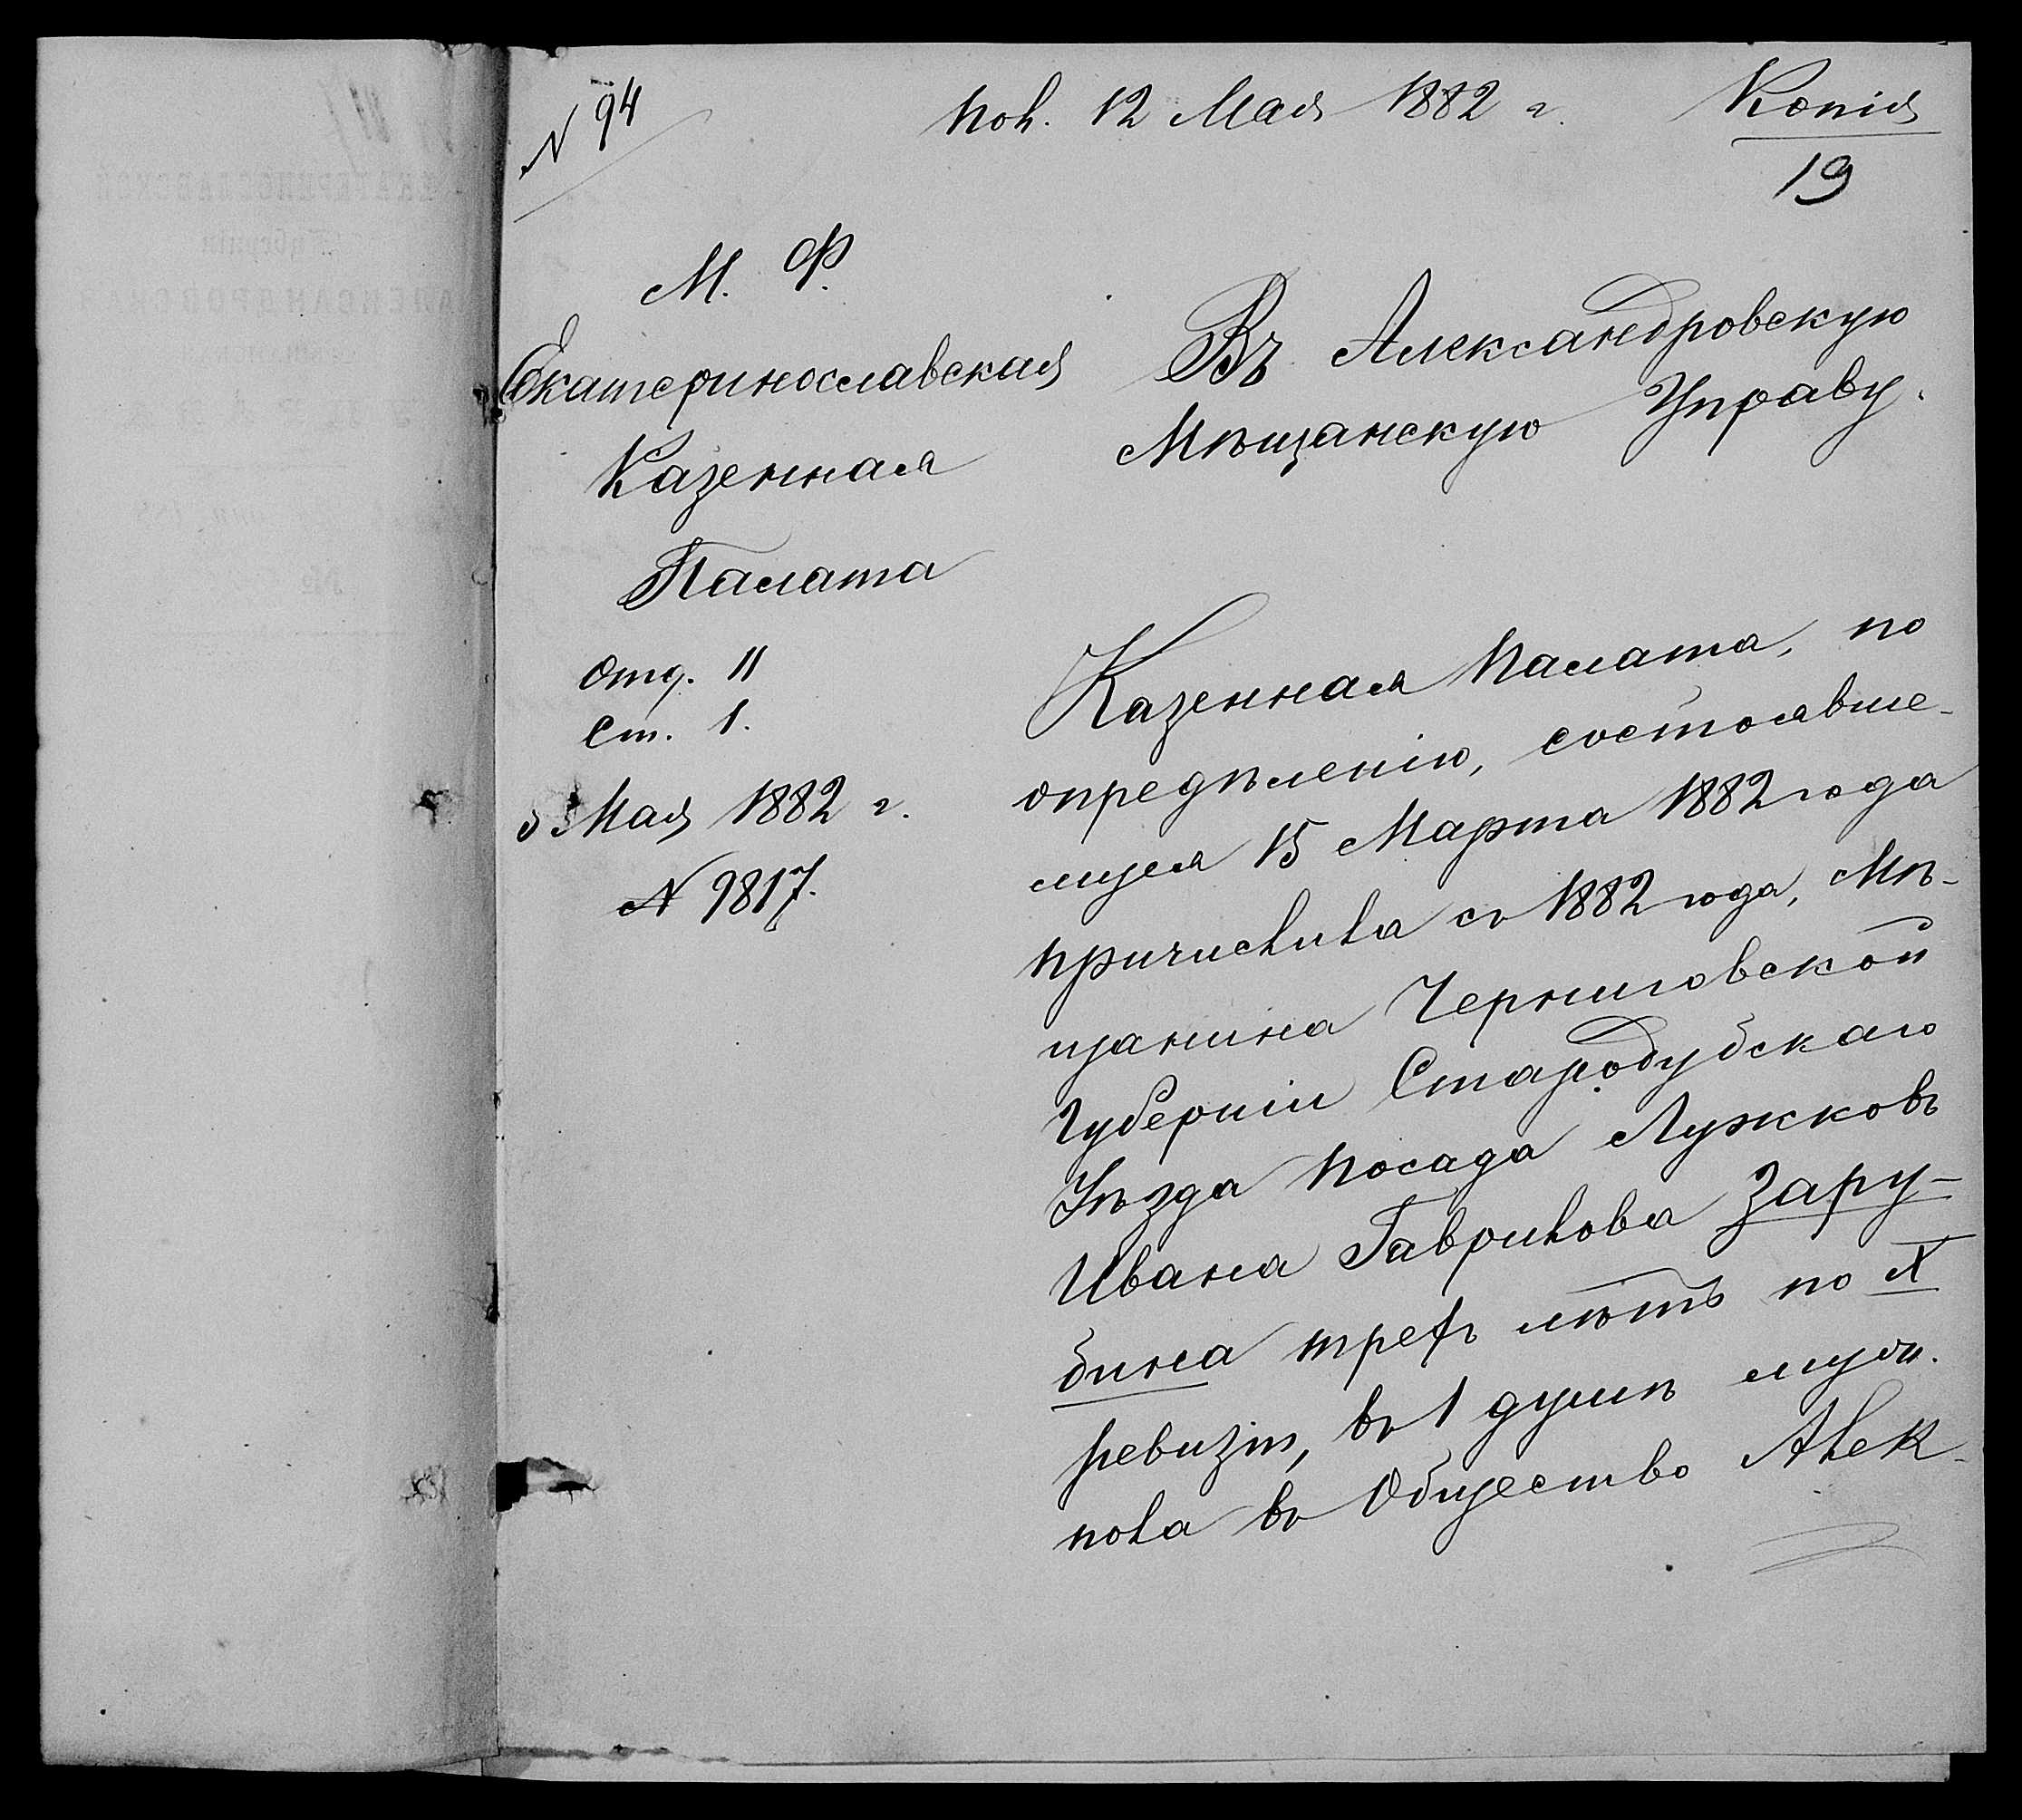 N 94
Пол. 12 Мая 1882 г.
Копія
19
М. Ф.
Екатеринославская
Казенная
Палата
Отд. II
Ст. 1.
5 Мая 1882 г.
N 9817.
Въ Александровскую
Мѣщанскую Управу.
Казенная Палата, по
опредѣленію, состоявше-
муся 15 Марта 1882 года
причислила съ 1882 года, Мѣ-
щанина Черниговской
Губерніи Стародубскаго
Уѣзда Посада Лужковъ
Ивана Гаврилова Зару-
бина трехъ лѣтъ по X
ревизіи, въ 1 душѣ муж.
пола въ Общество Алек-